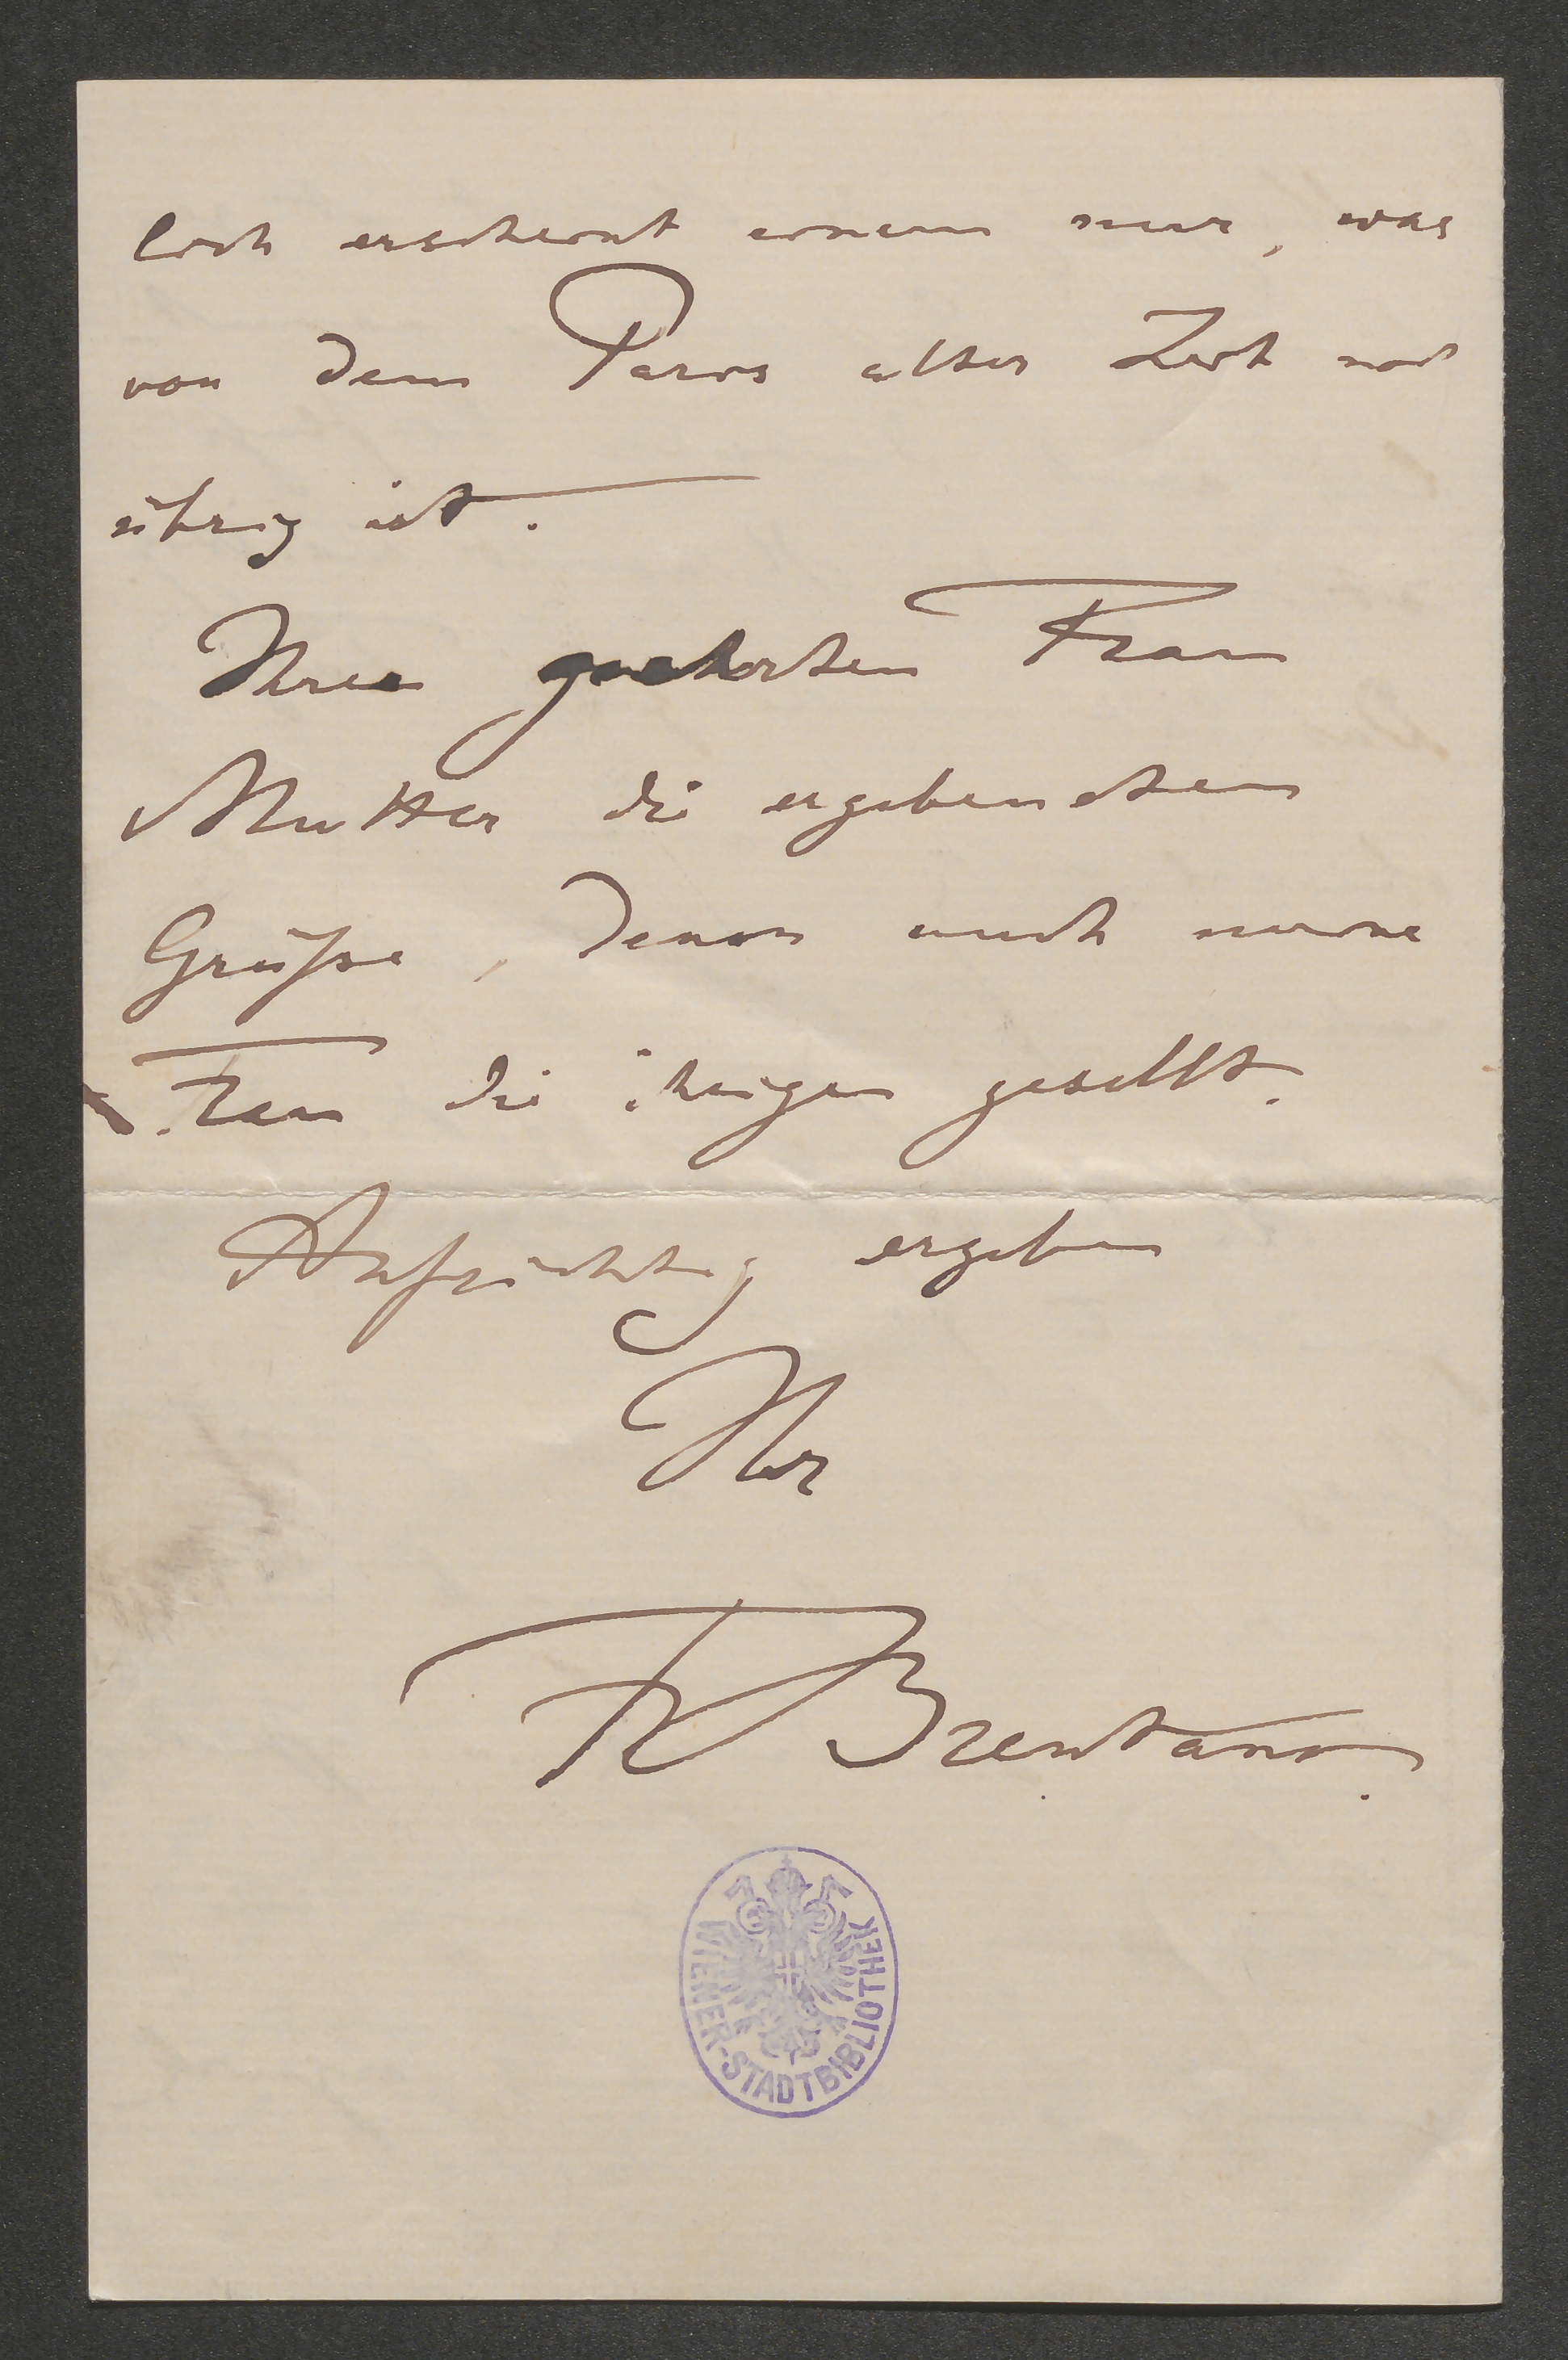 lich erscheint einem nur, was
von dem Paris alter Zeit noch
übrig ist.
Ihrer geehrten Frau
Mutter die ergebensten
Grüße, denen auch meine
Frau die ihrigen gesellt.
Aufrichtig ergeben
Ihr
Fr Brentano.
WIENER-STADTBIBLIOTHEK